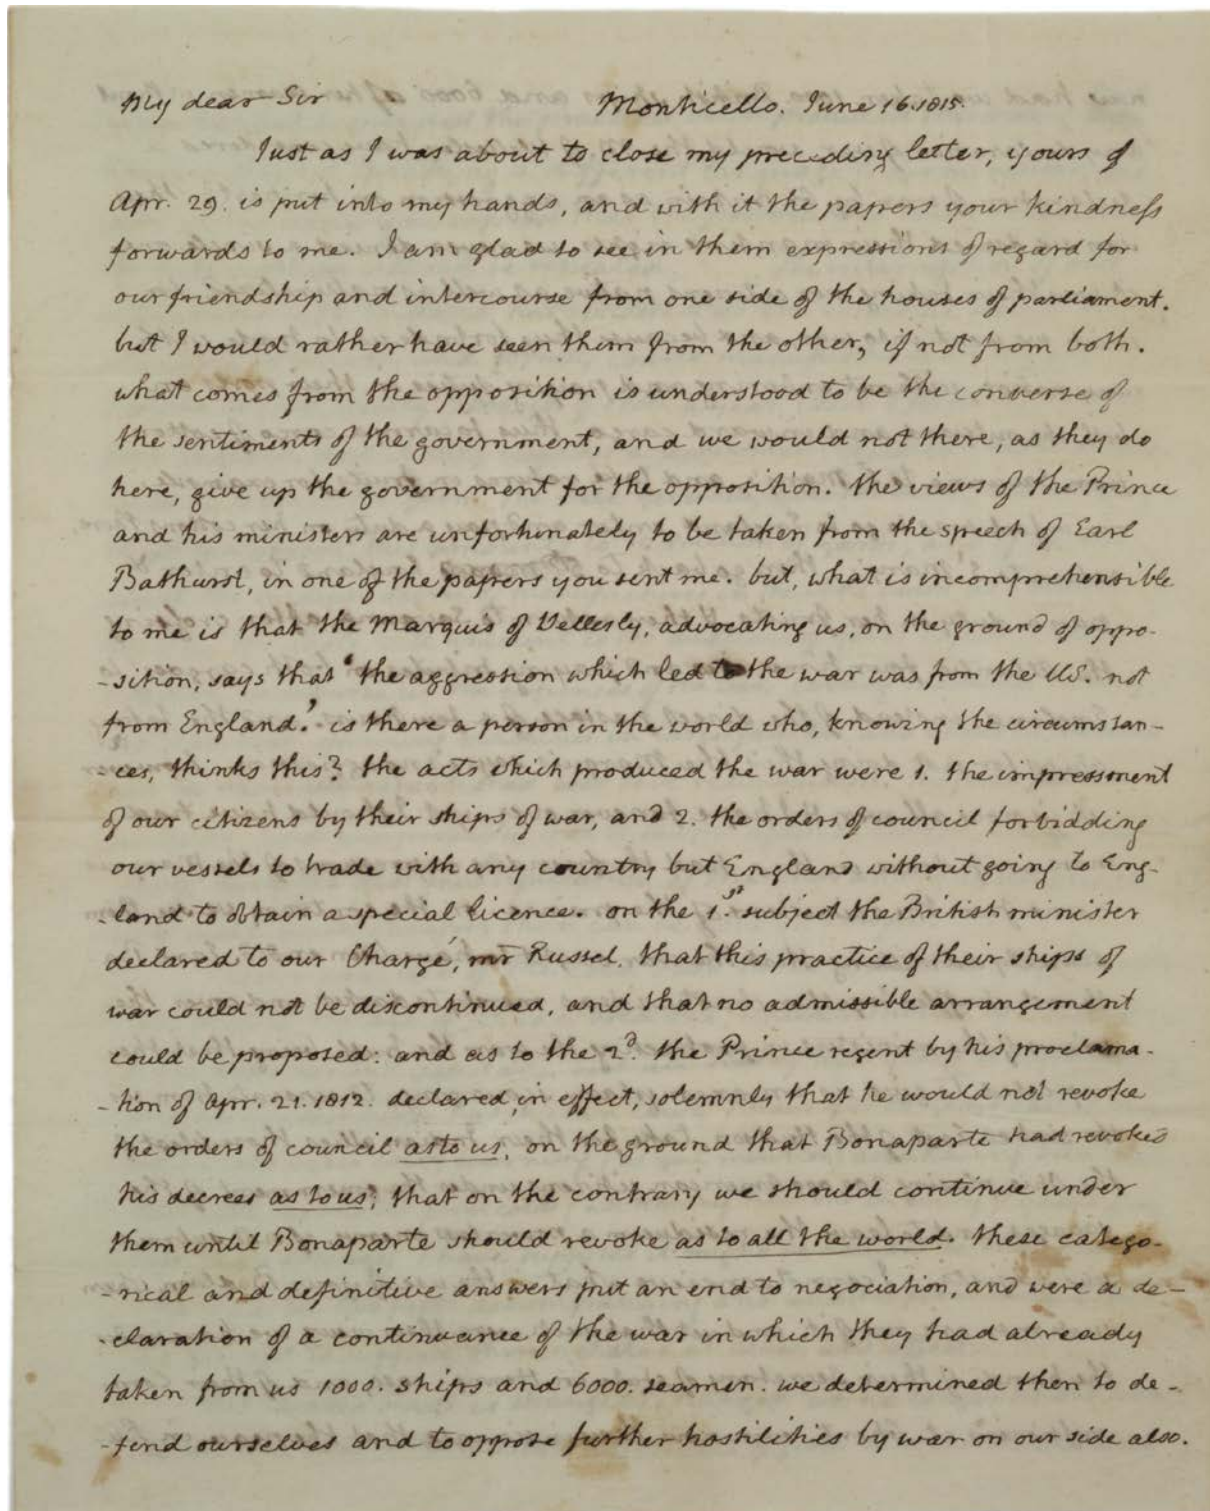 My dear Sir Monticello. June 16. 1815.
Just as I was about to close my preceding letter, yours of
Apr. 29. is put into my hands, and with it the papers your kindness
forwards to me. I am glad to see in them expressions of regard for
our friendship and intercourse from one side of the houses of parliament.
but I would rather have seen them from the other, if not from both.
what comes from the opposition is understood to be the converse of
the sentiments of the government, and we would not there, as they do
here, give up the government for the opposition. the views of the Prince
and his ministers are unfortunately to be taken from the speech of Earl
Bathurst, in one of the papers you sent me. but, what is incomprehensible
to me is that the Marquis of Wellesly, advocating us, on the ground of oppo-
-sition, says that 'the aggression which led to the war was from the US. not
from England.' is there a person in the world who, knowing the circumstan-
-ces, thinks this? the acts which produced the war were 1. the impressment
of our citizens by their ships of war, and 2. the orders of council forbidding
our vessels to trade with any country but England without going to Eng-
-land to obtain a special licence. on the 1.st subject the British minister
declared to our Chargé, mr Russel, that this practice of their ships of
war could not be discontinued, and that no admissible arrangement
could be proposed: and as to the 2.d the Prince regent by his proclama-
-tion of Apr. 21. 1812. declared, in effect, solemnly that he would not revoke
the orders of council as to us, on the ground that Bonaparte had revoked
his decrees as to us; that on the contrary we should continue under
them until Bonaparte should revoke as to all the world. these catego-
-rical and definitive answers put an end to negociation, and were a de-
-claration of a continuance of the war in which they had already
taken from us 1000. ships and 6000. seamen. we determined then to de-
-fend ourselves and to oppose further hostilities by war on our side also.